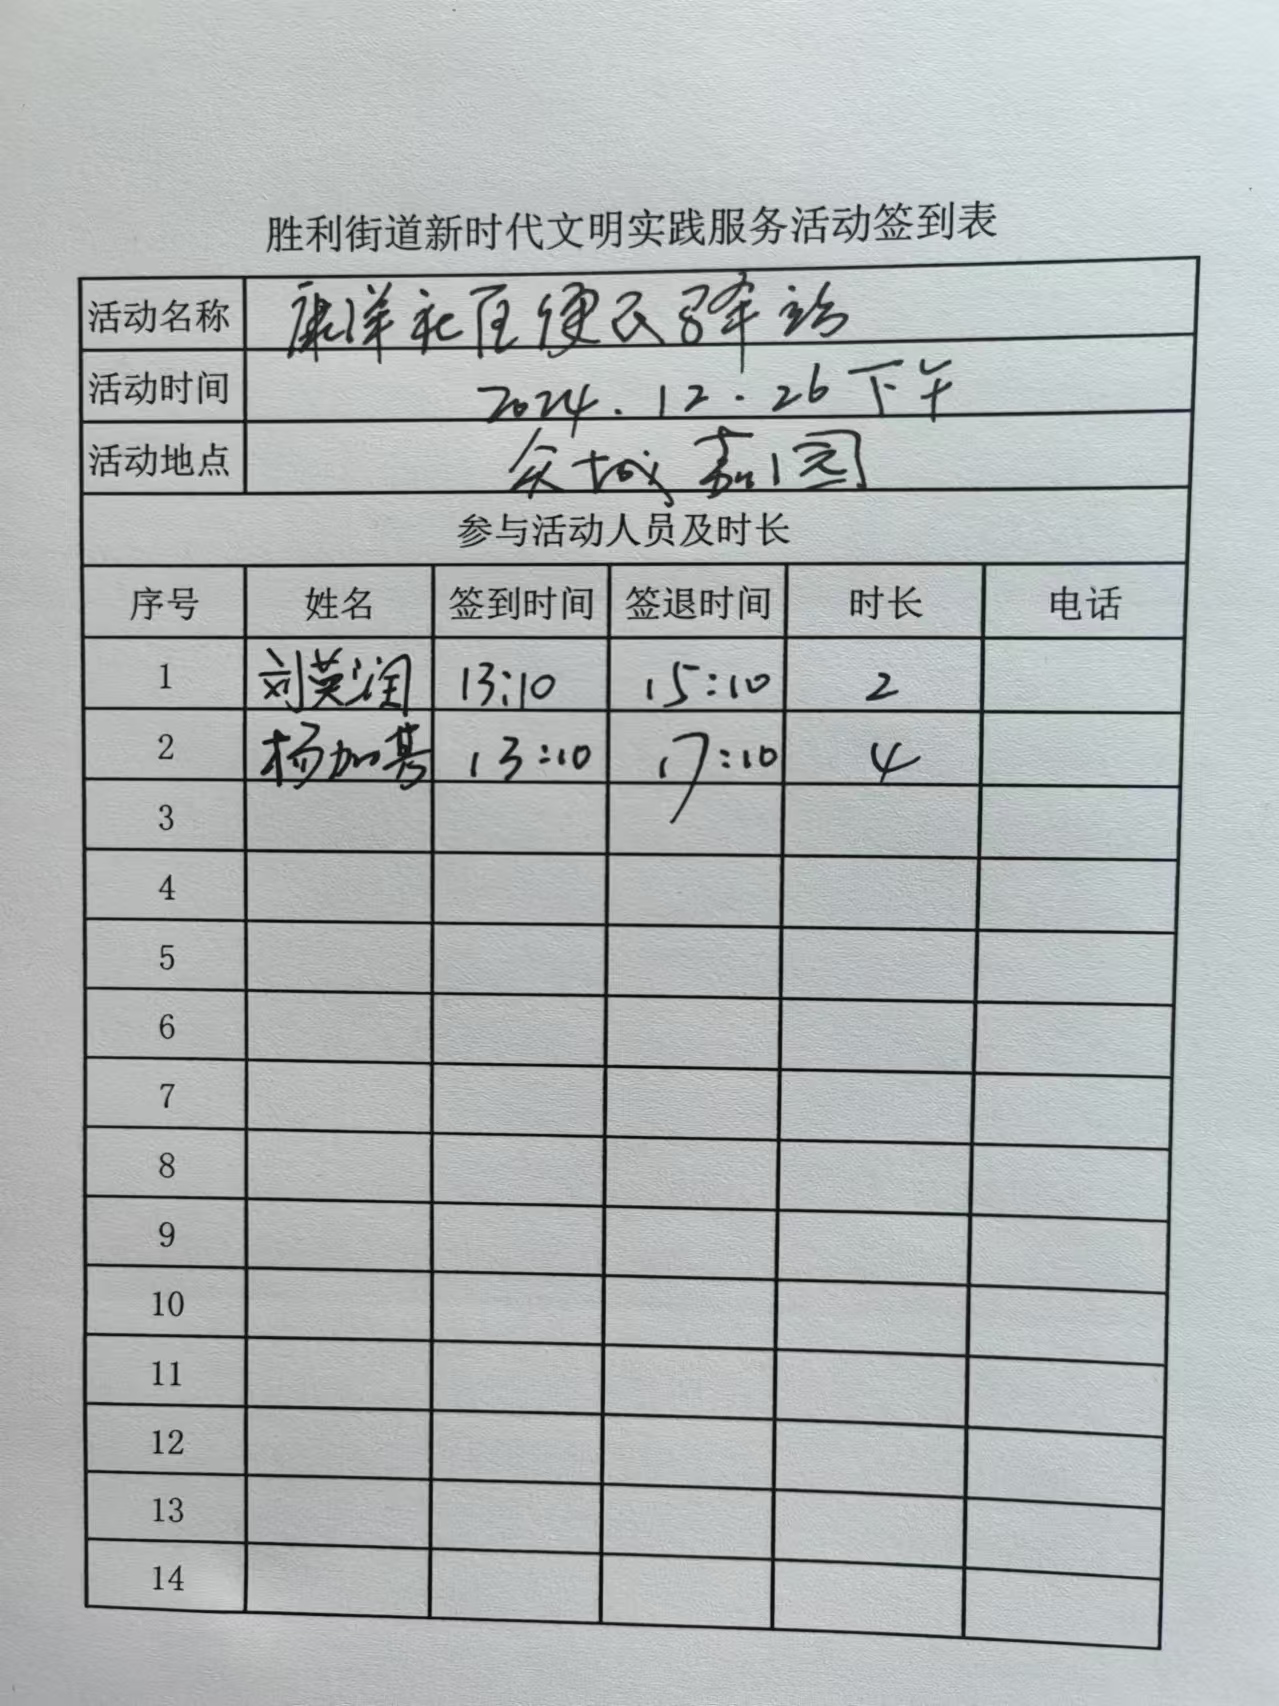 胜利街道新时代文明实践服务活动签到表
活动名称 康洋社区便民驿站
活动时间 2024.12.26下午
活动地点 众城嘉园
参与活动人员及时长
序号 姓名 签到时间 签退时间 时长 电话
1 刘英润 13:10 15:10 2
2 杨加 13:10 17:10 4
3
4
5
6
7
8
9
10
11
12
13
14